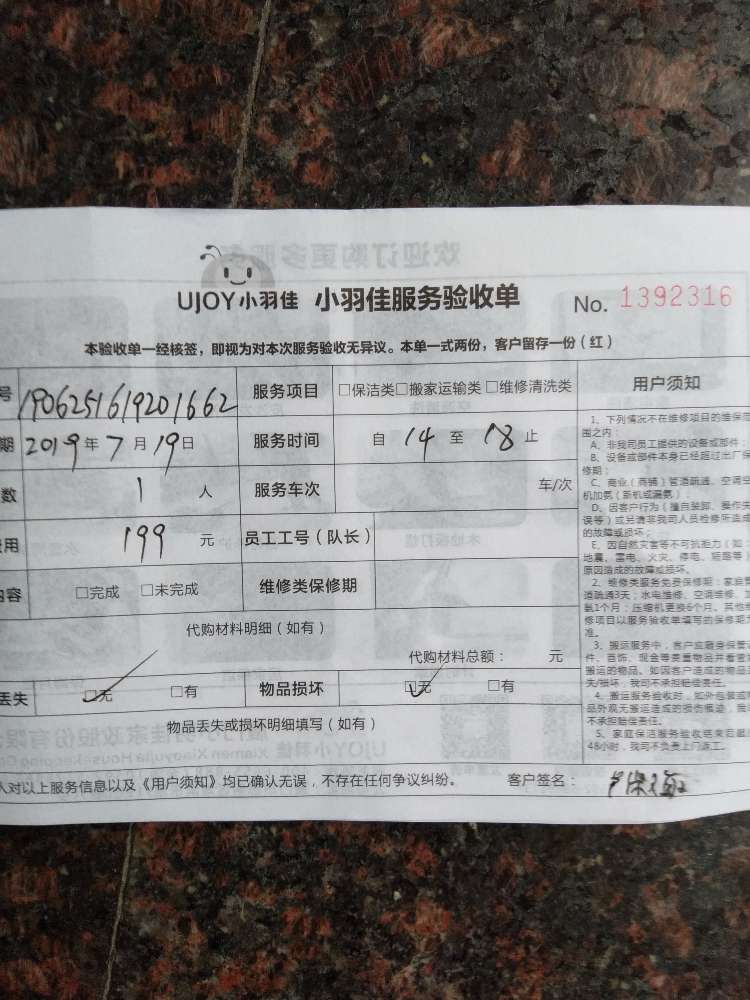 UJOY小羽佳 小羽佳服务验收单 No. 1392316
本验收单一经核签，即视为对本次服务验收无异议。本单一式两份，客户留存一份（红）
号 1906251619201662 服务项目 □保洁类□搬家运输类□维修清洗类 用户须知
期 2019年7月19日 服务时间 自 14 至 18 止
数 1 人 服务车次 车/次
费用 199 元 员工工号（队长）
内容 □完成 □未完成 维修类保修期
代购材料明细（如有）
代购材料总额： 元
丢失 □无 □有 物品损坏 □无 □有
物品丢失或损坏明细填写（如有）
人对以上服务信息以及《用户须知》均已确认无误，不存在任何争议纠纷。 客户签名：
1、下列情况不在维修项目的维保范
围之内：
A、非我司员工提供的设备或部件；
B、设备或部件本身已经超过出厂保
修期；
C、商业（商铺）管道疏通、空调空
机加氨（新机或漏氨）；
D、因客户行为（擅自装卸、操作失
误等）或另请非我司人员检修所造成
的故障或损坏；
E、因自然灾害等不可抗拒力（如：
地震、雷电、火灾、停电、鼠患等）
原因造成的故障或损坏。
2、维修类服务免费保修期：家庭管
道疏通3天；水电维修、空调维修、加
氨1个月；压缩机更换6个月。其他维
修项目以服务验收单填写的保修期为
准。
3、搬运服务中，客户应随身保管证
件、首饰、现金等贵重物品并看管被
搬运的物品。如因客户造成的物品丢
失/损坏，我司不承担赔偿责任。
4、搬运服务验收时，如外包装或物
品外观无搬运造成的损伤痕迹，我司
不承担赔偿责任。
5、家庭保洁服务验收结束后超过
48小时，我司不负责上门返工。